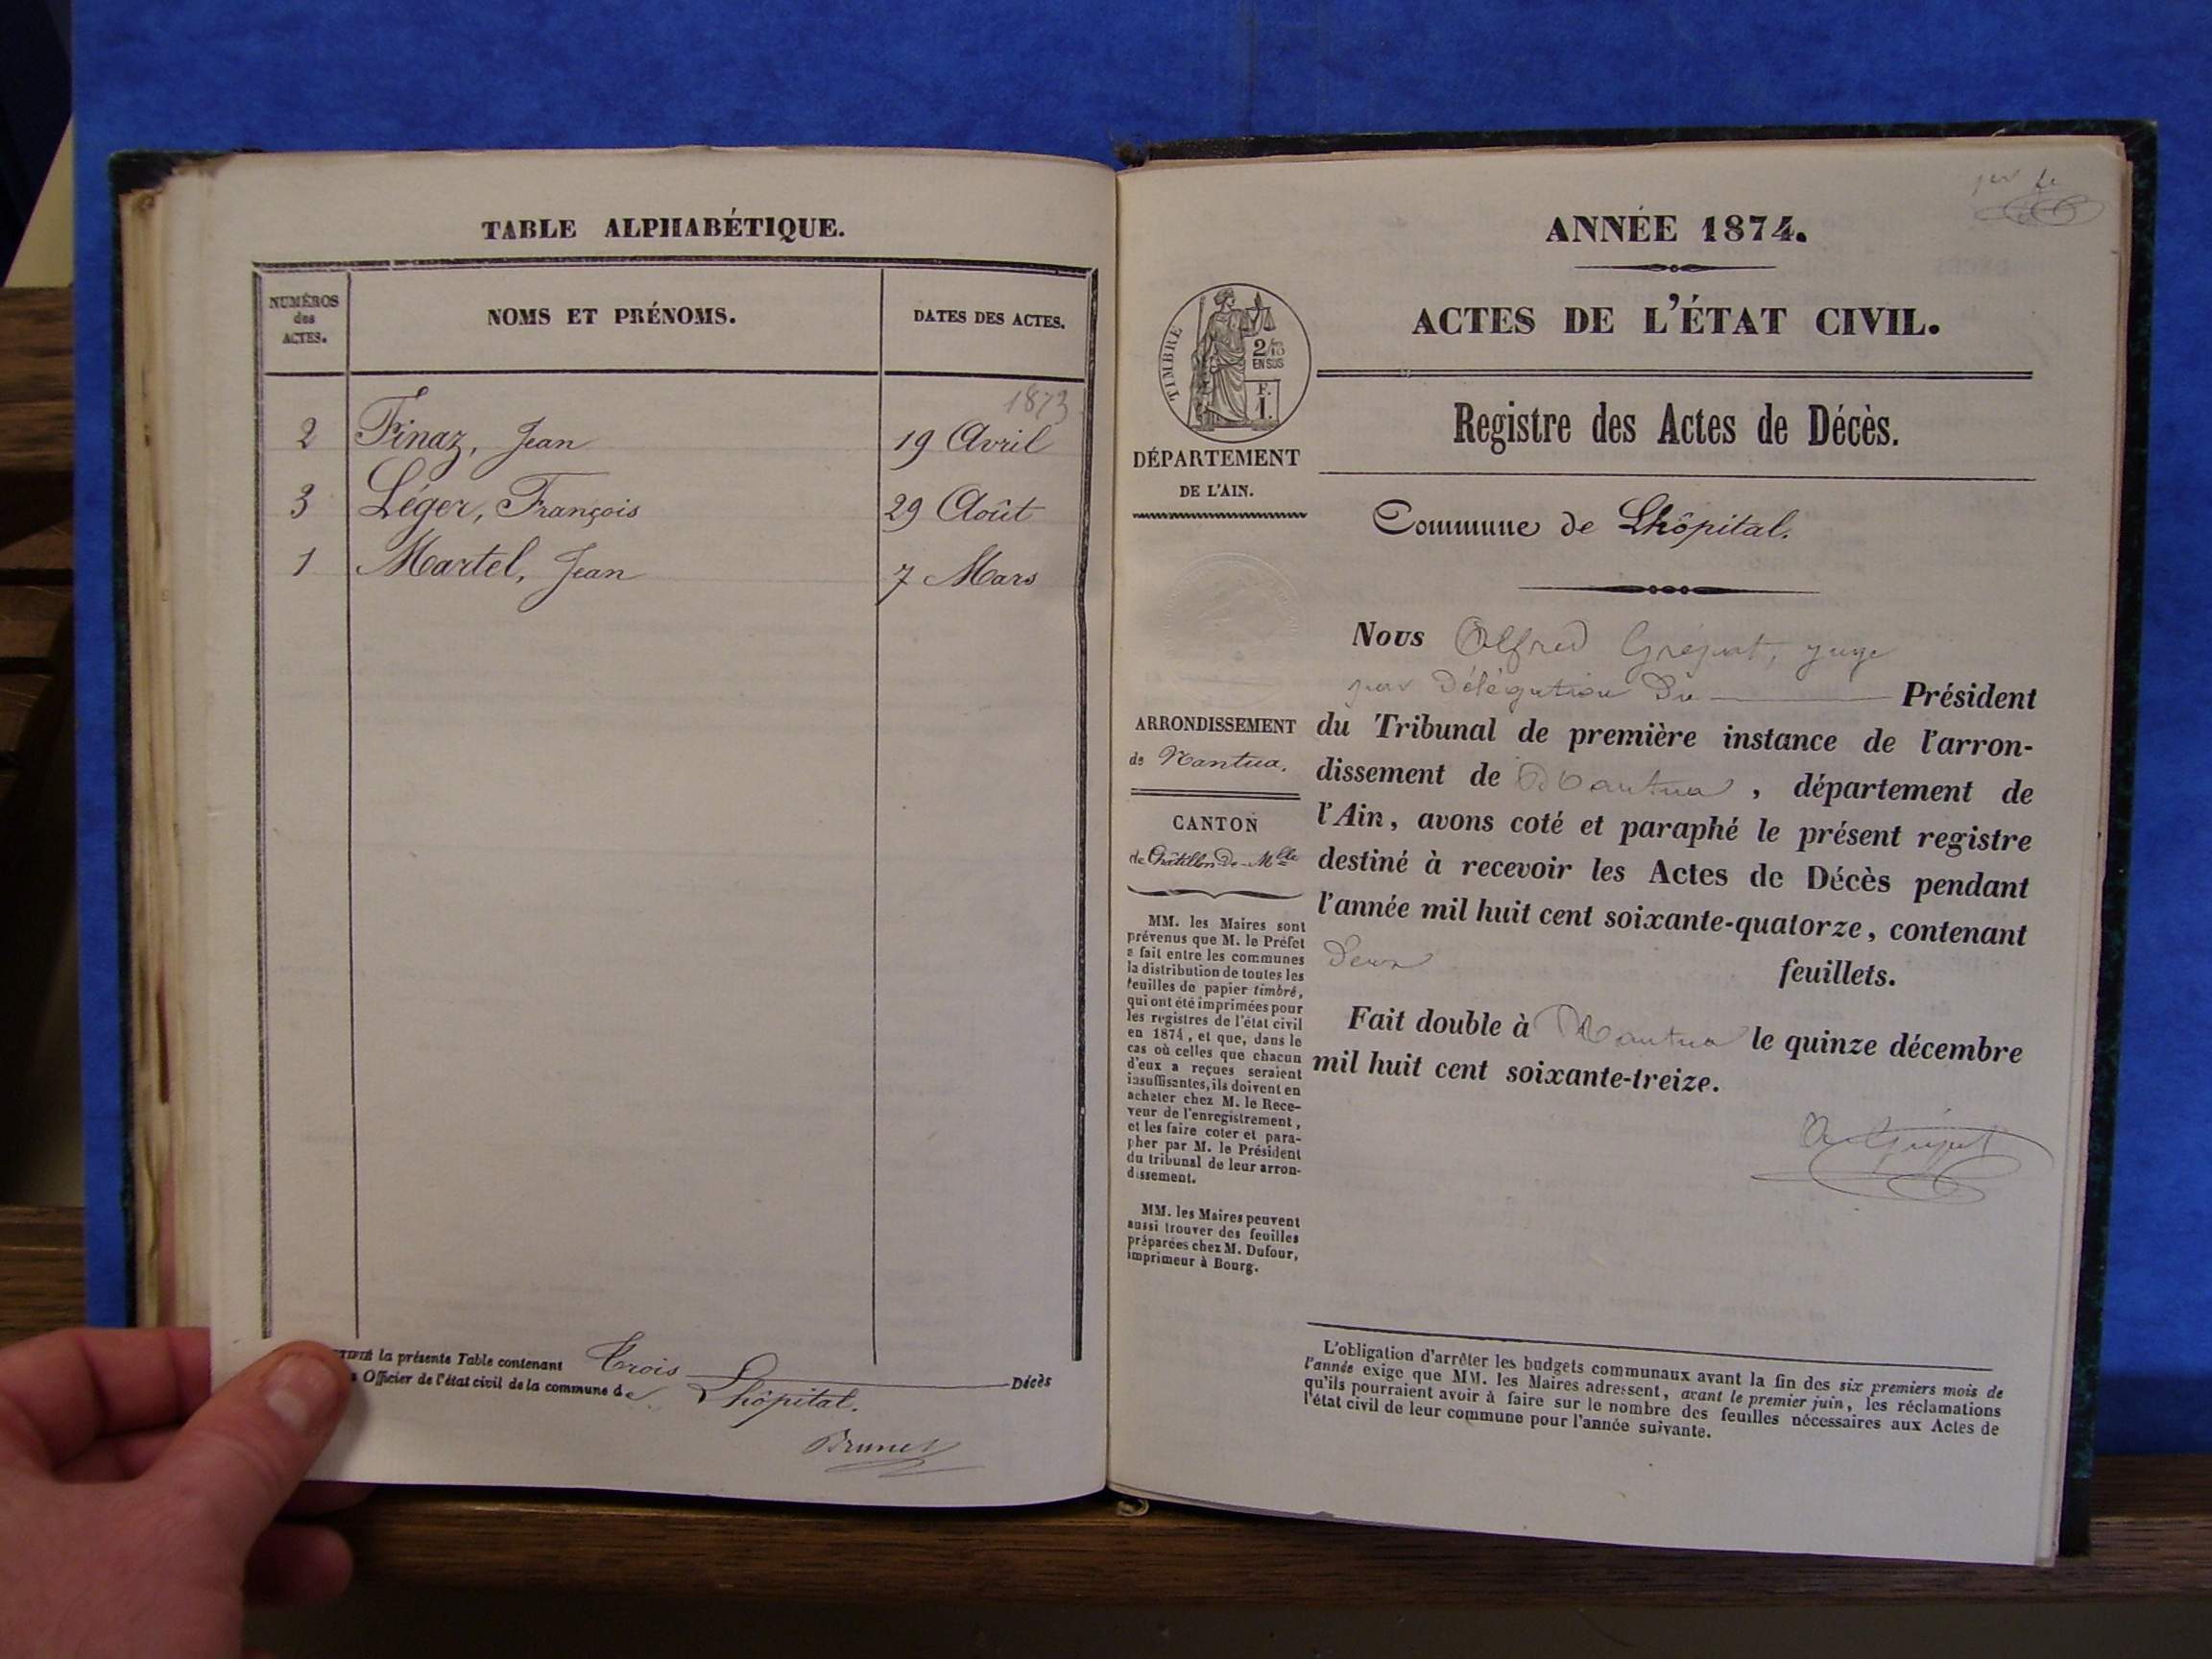 TABLE ALPHABÉTIQUE.
NUMÉROS
des
ACTES.
NOMS ET PRÉNOMS.
DATES DES ACTES.
1873
2 Finaz, Jean 19 Avril
3 Léger, François 29 Août
1 Martel, Jean 7 Mars
la présente Table contenant Trois Décès
Officier de l'état civil de la commune de Lhôpital.
Brunet
ANNÉE 1874.
ACTES DE L'ÉTAT CIVIL.
TIMBRE
2/10
EN SUS
F.
1.
DÉPARTEMENT
DE L'AIN.
Registre des Actes de Décès.
Commune de Lhôpital.
ARRONDISSEMENT
de Nantua.
CANTON
de Châtillon-de-Mlle
MM. les Maires sont
prévenus que M. le Préfet
a fait entre les communes
la distribution de toutes les
feuilles de papier timbré,
qui ont été imprimées pour
les registres de l'état civil
en 1874, et que, dans le
cas où celles que chacun
d'eux a reçues seraient
insuffisantes, ils doivent en
acheter chez M. le Rece-
veur de l'enregistrement,
et les faire coter et para-
pher par M. le Président
du tribunal de leur arron-
dissement.
MM. les Maires peuvent
aussi trouver des feuilles
préparées chez M. Dufour,
imprimeur à Bourg.
Nous Alfred juge
par Délégation Du Président
du Tribunal de première instance de l'arron-
dissement de Nantua, département de
l'Ain, avons coté et paraphé le présent registre
destiné à recevoir les Actes de Décès pendant
l'année mil huit cent soixante-quatorze, contenant
Deux feuillets.
Fait double à Nantua le quinze décembre
mil huit cent soixante-treize.
L'obligation d'arrêter les budgets communaux avant la fin des six premiers mois de
l'année exige que MM. les Maires adressent, avant le premier juin, les réclamations
qu'ils pourraient avoir à faire sur le nombre des feuilles nécessaires aux Actes de
l'état civil de leur commune pour l'année suivante.